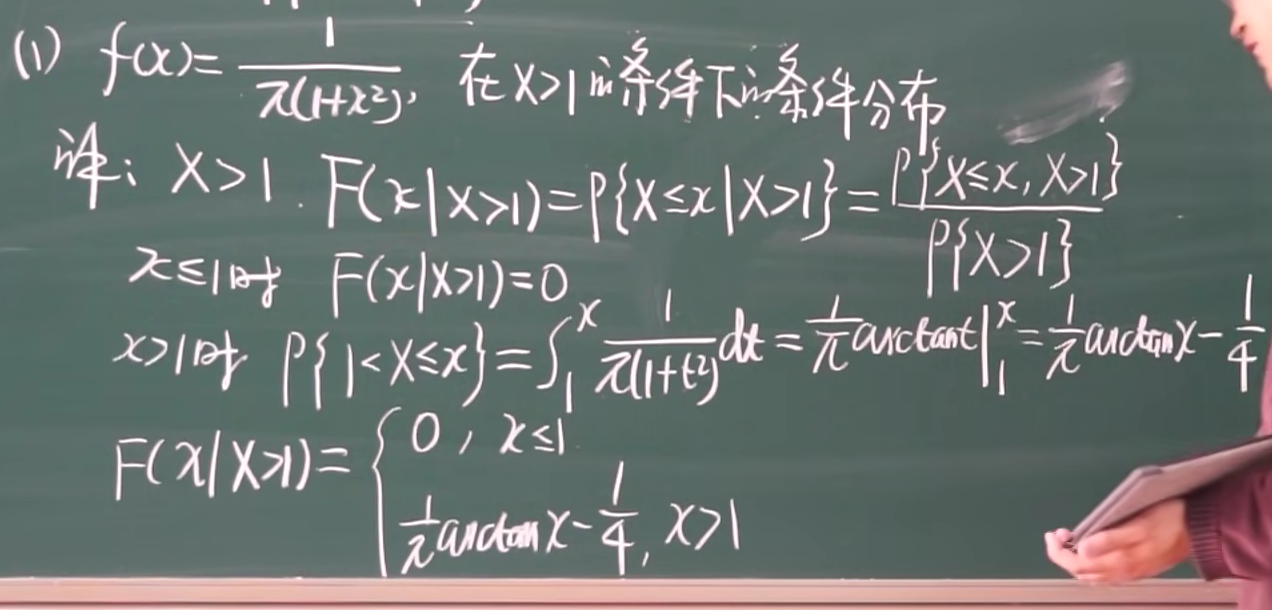 (1) f(x)=1/π(1+x²), 在X>1的条件下的条件分布
解: X>1. F(x|X>1)=P{X≤x|X>1}=P{X≤x, X>1}/P{X>1}
x≤1时 F(x|X>1)=0
x>1时 P{1<X≤x}=∫₁ˣ 1/π(1+t²) dt = 1/π arctant|₁ˣ = 1/π arctanx - 1/4
F(x|X>1)= { 0, x≤1
1/π arctanx - 1/4, x>1